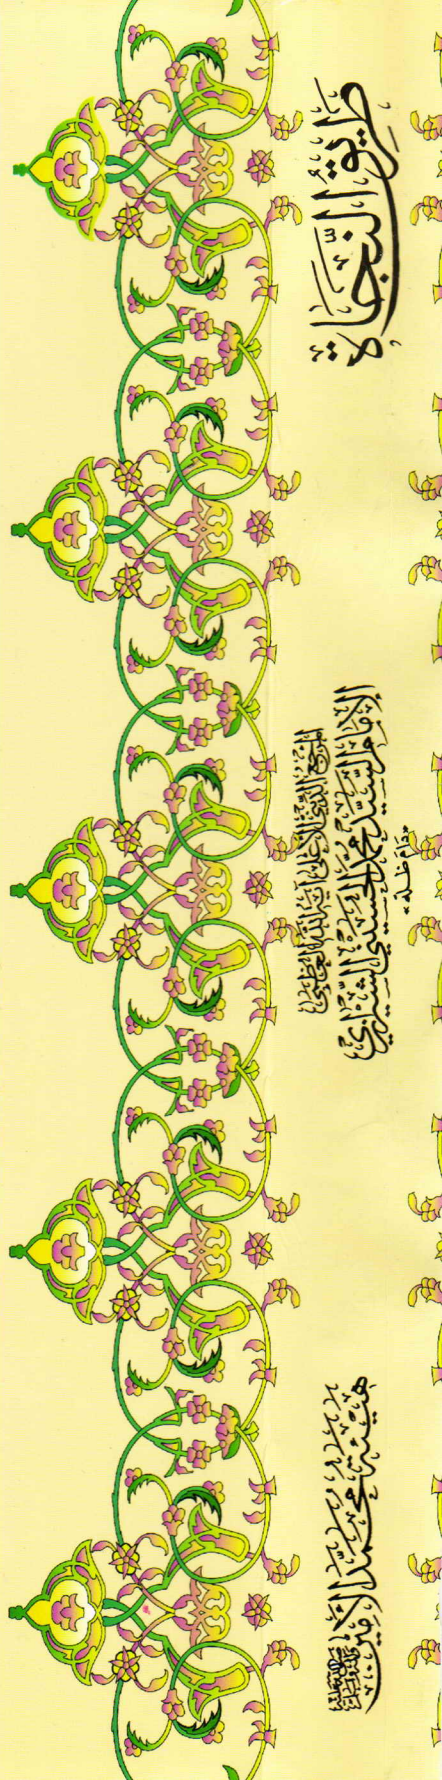 طريق النجاة
المرجع الديني الأعلى آية الله العظمى
الإمام السيد محمد الحسيني الشيرازي
«دام ظله»
هيئة محمد الأمين ﷺ